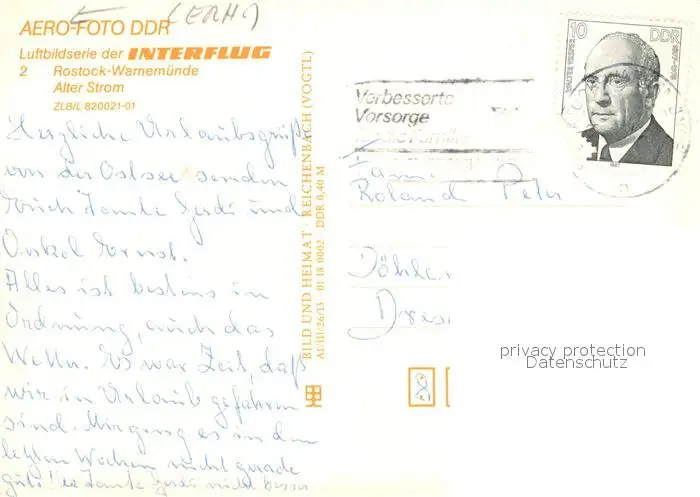 E (ERH.)
AERO-FOTO DDR
Luftbildserie der INTERFLUG
2 Rostock-Warnemünde
Alter Strom
ZLB/L 820021-01
Herzliche Urlaubsgrüß
von der Ostsee senden
Tante Gerdi und
Onkel Ernst.
Alles ist bestens in
Ordnung, auch das
Wetter. Es war Zeit, daß
wir in Urlaub gefahren
sind. Mir ging es in den
letzten Wochen nicht gerade
gut! Tante Gerdi nicht besser
BILD UND HEIMAT REICHENBACH (VOGTL)
A1/III/26/13 01 18 0002 DDR 0,40 M
Verbesserte
Vorsorge
10 DDR
Fam.
Roland Peter
Döhlen
Dres
privacy protection
Datenschutz